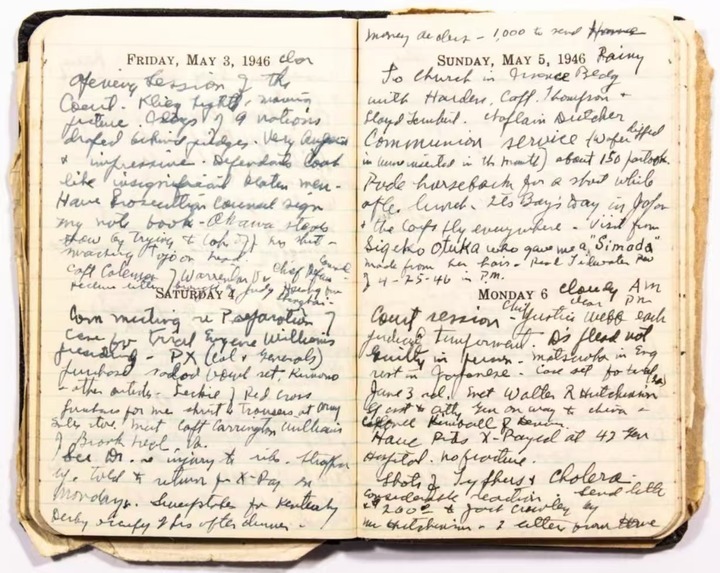 FRIDAY, MAY 3, 1946 clear
Opening Session of the
Court. Klieg lights, moving
picture. Flags of 9 nations
draped behind judges. Very
& impressive. Defendants look
like insignificant beaten men -
Have Prosecution Counsel sign
my note book - Okawa steals
show by trying to take off his shirt -
smacking Tojo on head.
Capt Coleman of Warrenton Va Chief Defense Counsel
SATURDAY 4
Com meeting re Preparation of
case for trial Eugene Williams
presiding - PX (Col & Generals)
purchase salad bowl set, Kimono
& other articles - of Red Cross
purchase for me shirt & trousers at Army
store. Met Capt Carrington Williams
of Brook Va.
See Dr. re injury to rib.
Told to return for X-Ray on
Monday. Sweepstakes for Kentucky
Derby after dinner -
money orders - 1,000 to send
SUNDAY, MAY 5, 1946 Rainy
To Church in Bldg
with Harden, Capt. Thompson &
Lloyd Chaplain Dietcher
Communion service (wafer dipped
in wine inserted in the mouth) about 150 partook.
Rode horseback for a short while
after lunch. Its Boys Day in Japan
& the Carps fly everywhere - Visit from
Sigeko Otuka who gave me a "Simada"
made from her hair - Read Tidewater Rev
of 4-25-46 in P.M.
MONDAY 6 cloudy AM
clear P.M.
Court session - Chief Justice Webb each
Ds plead not
guilty in person - Matsuoka in Eng
rest in Japanese. Case set for trial
June 3rd. Met Walter R Hutchinson
Asst Atty Gen on way to China -
Colonel Kimball &
Have Ribs X-Rayed at 42 Gen
Hospital. no fracture.
Shots of Typhus & Cholera -
considerable reaction. Send
$200.00 to Crowley by
Mr Hutchinson - 2 letters from